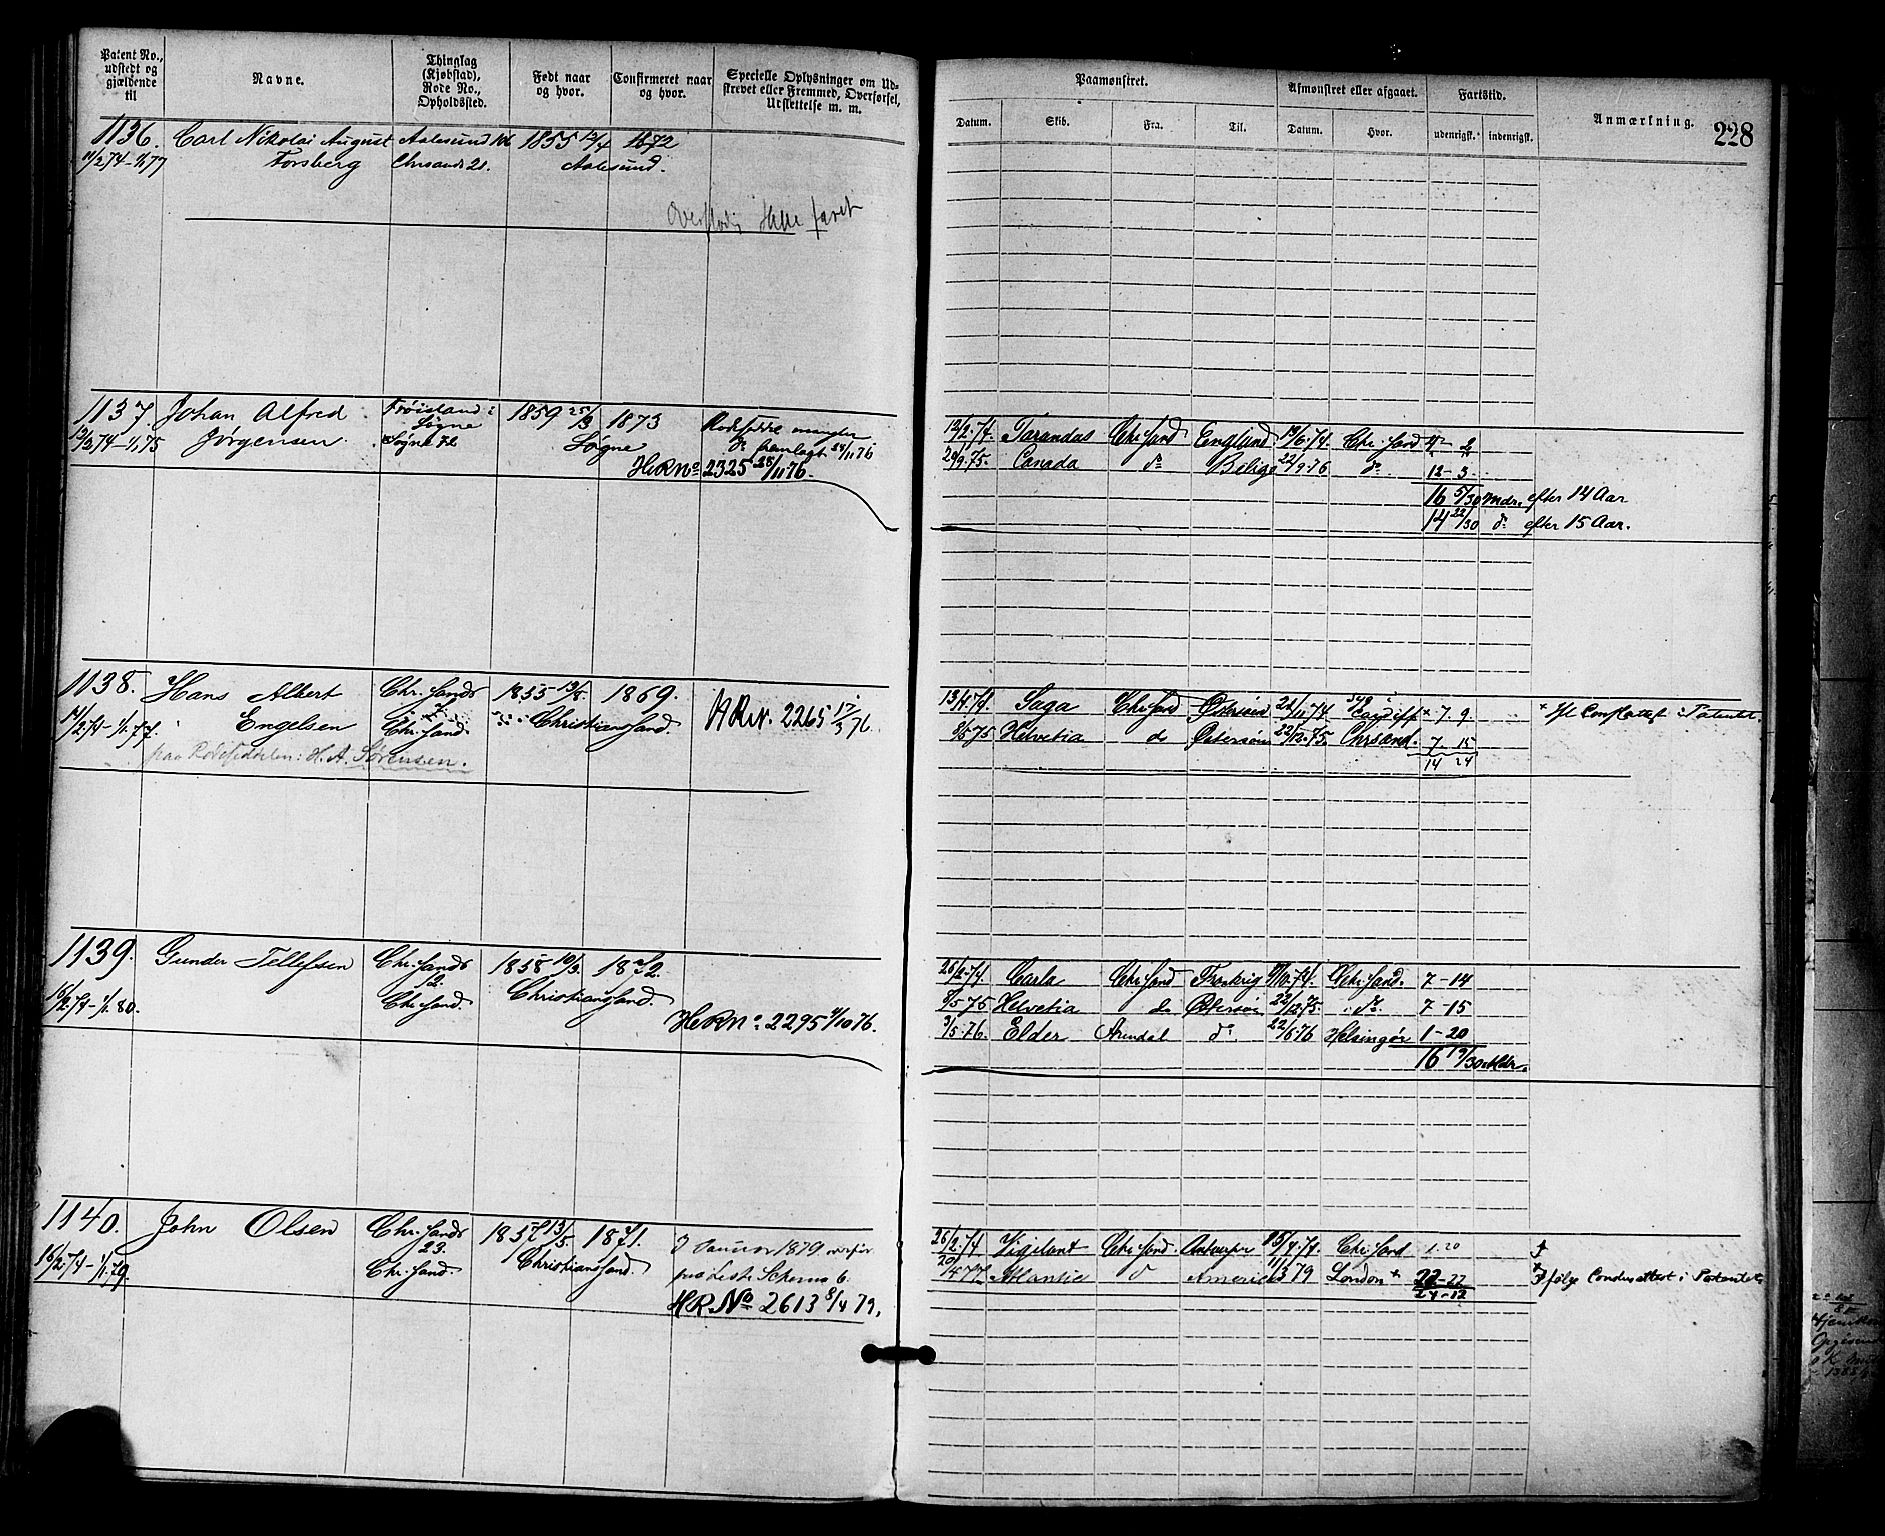 Patent No., udstedt og gjældende til
Navne.
Thinglag (Kjøbstad), Rode No., Opholdssted.
Født naar og hvor.
Confirmeret naar og hvor.
Specielle Oplysninger om Udskrevet eller Fremmed, Overførsel, Udslettelse m. m.
Paamønstret.
Afmønstret eller afgaaet.
Fartstid.
Anmærkning.
228
Datum.
Skib.
Fra.
Til.
Datum.
Hvor.
udenrigsk.
indenrigsk.
1136. Carl Nikolai August Aalesund 1855 12/4 1872
11/2 74 - 1/1 77 Forsberg Chrsands 21. Aalesund.
1137. Johan Alfred Frøisland i Søgne 1859 25/3 1873
12/2 74 - 1/1 75 Jørgensen Søgne 72 Søgne
fremlagt 28/11 76
HRNo 2325 28/11 76.
12/2.74. Tarandas Chr.sand England 19/6.74. Chr.sand 4 - 2
20/9.75. Canada do Belige 22/9.76 do 12 - 3
16 5/30 Mdr. efter 14 Aar
14 22/30 do efter 15 Aar.
1138. Hans Albert Chr.sands 1855 19/8. 1869.
14/2.74 - 1/1.77. Engelsen 7 Chr.sand. Christianssand.
H.A. Sørensen.
HRNr. 2265 17/5 76.
13/4.74. Saga Chr.sand Østersøen 22/11.74 Cardiff + 7. 9
8/5.75 Helvetia do Østersøen 22/12.75. Chrsand. 7 15
14 24
1139. Gunder Tellefsen Chr.sands 1858 10/3. 1872.
16/2.74 - 1/1.80. 2. Chr.sand. Christianssand.
HRNo. 2295 4/10 76.
26/2.74. Carla Chr.sand 9/10.74. Chr.sand. 7 - 14
8/5 75 Helvetia do Østersøen 22/12.75. do. 7 - 15
3/5.76. Elder Arendal do. 22/6 76 Helsingør 1 - 20
16 19/30 Mdr.
1140. John Olsen Chr.sands 1857 13/5. 1871.
16/2.74 - 1/1.79. 23. Chr.sand. Christianssand.
I Januar 1879
Schema 6.
HR.No 2613 8/4 79.
26/2.74 Vigilant Chr.sand. Antwerpen 15/4.74. Chr.sand 1.20
20/4 77 Atlantic do America 11/3 79 London + 22 - 22
24 - 12